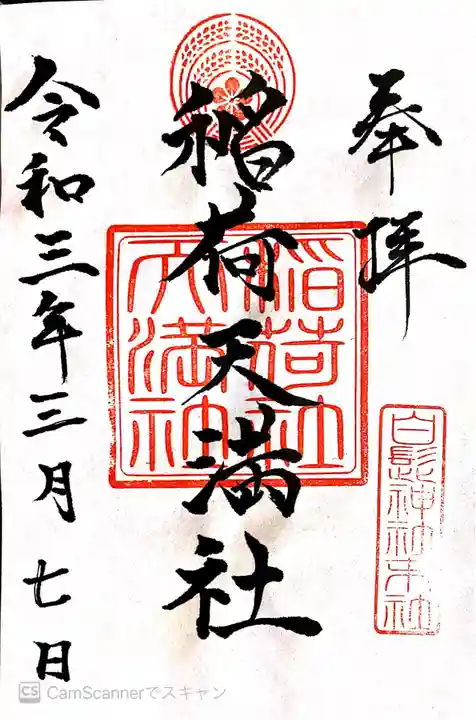 奉拝
稲荷天満社
令和三年三月七日
稲荷社
天満神
白髭神社末社
CS CamScannerでスキャン